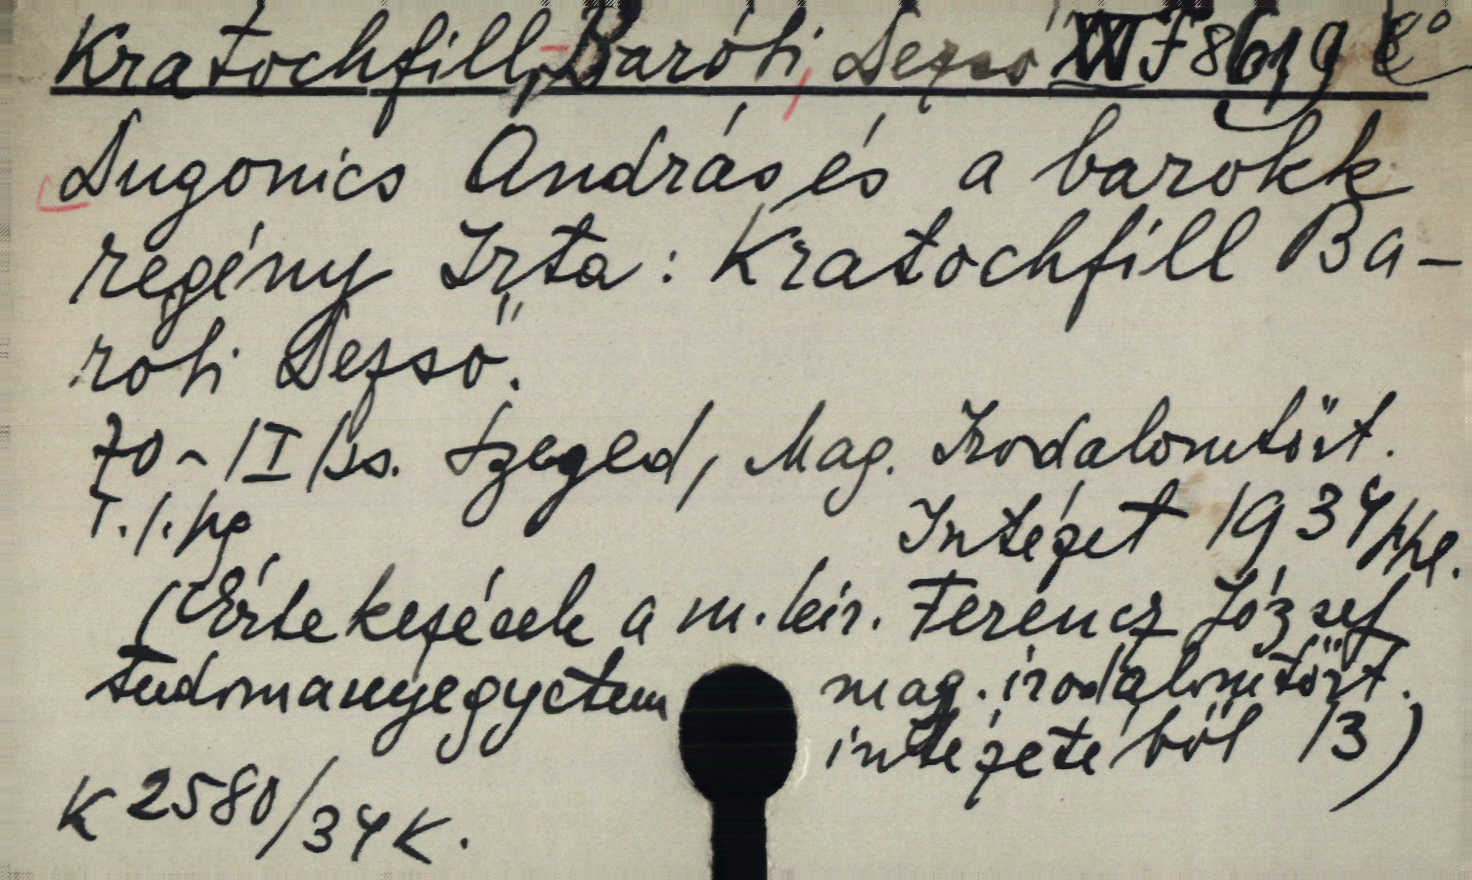 Kratochfill-Baróti, Dezső XXI F 8619 8°
Dugonics András és a barokk
regény Irta: Kratochfill Ba-
róti Dezső.
70 - /I/ ss. Szeged, Mag. Irodalomtört.
T. j. Intézet 1934
(Értekezések a m. kir. Ferencz József
tudomanyegyetem mag. irodalomtört.
intézetéből 13)
K 2580/34 K.